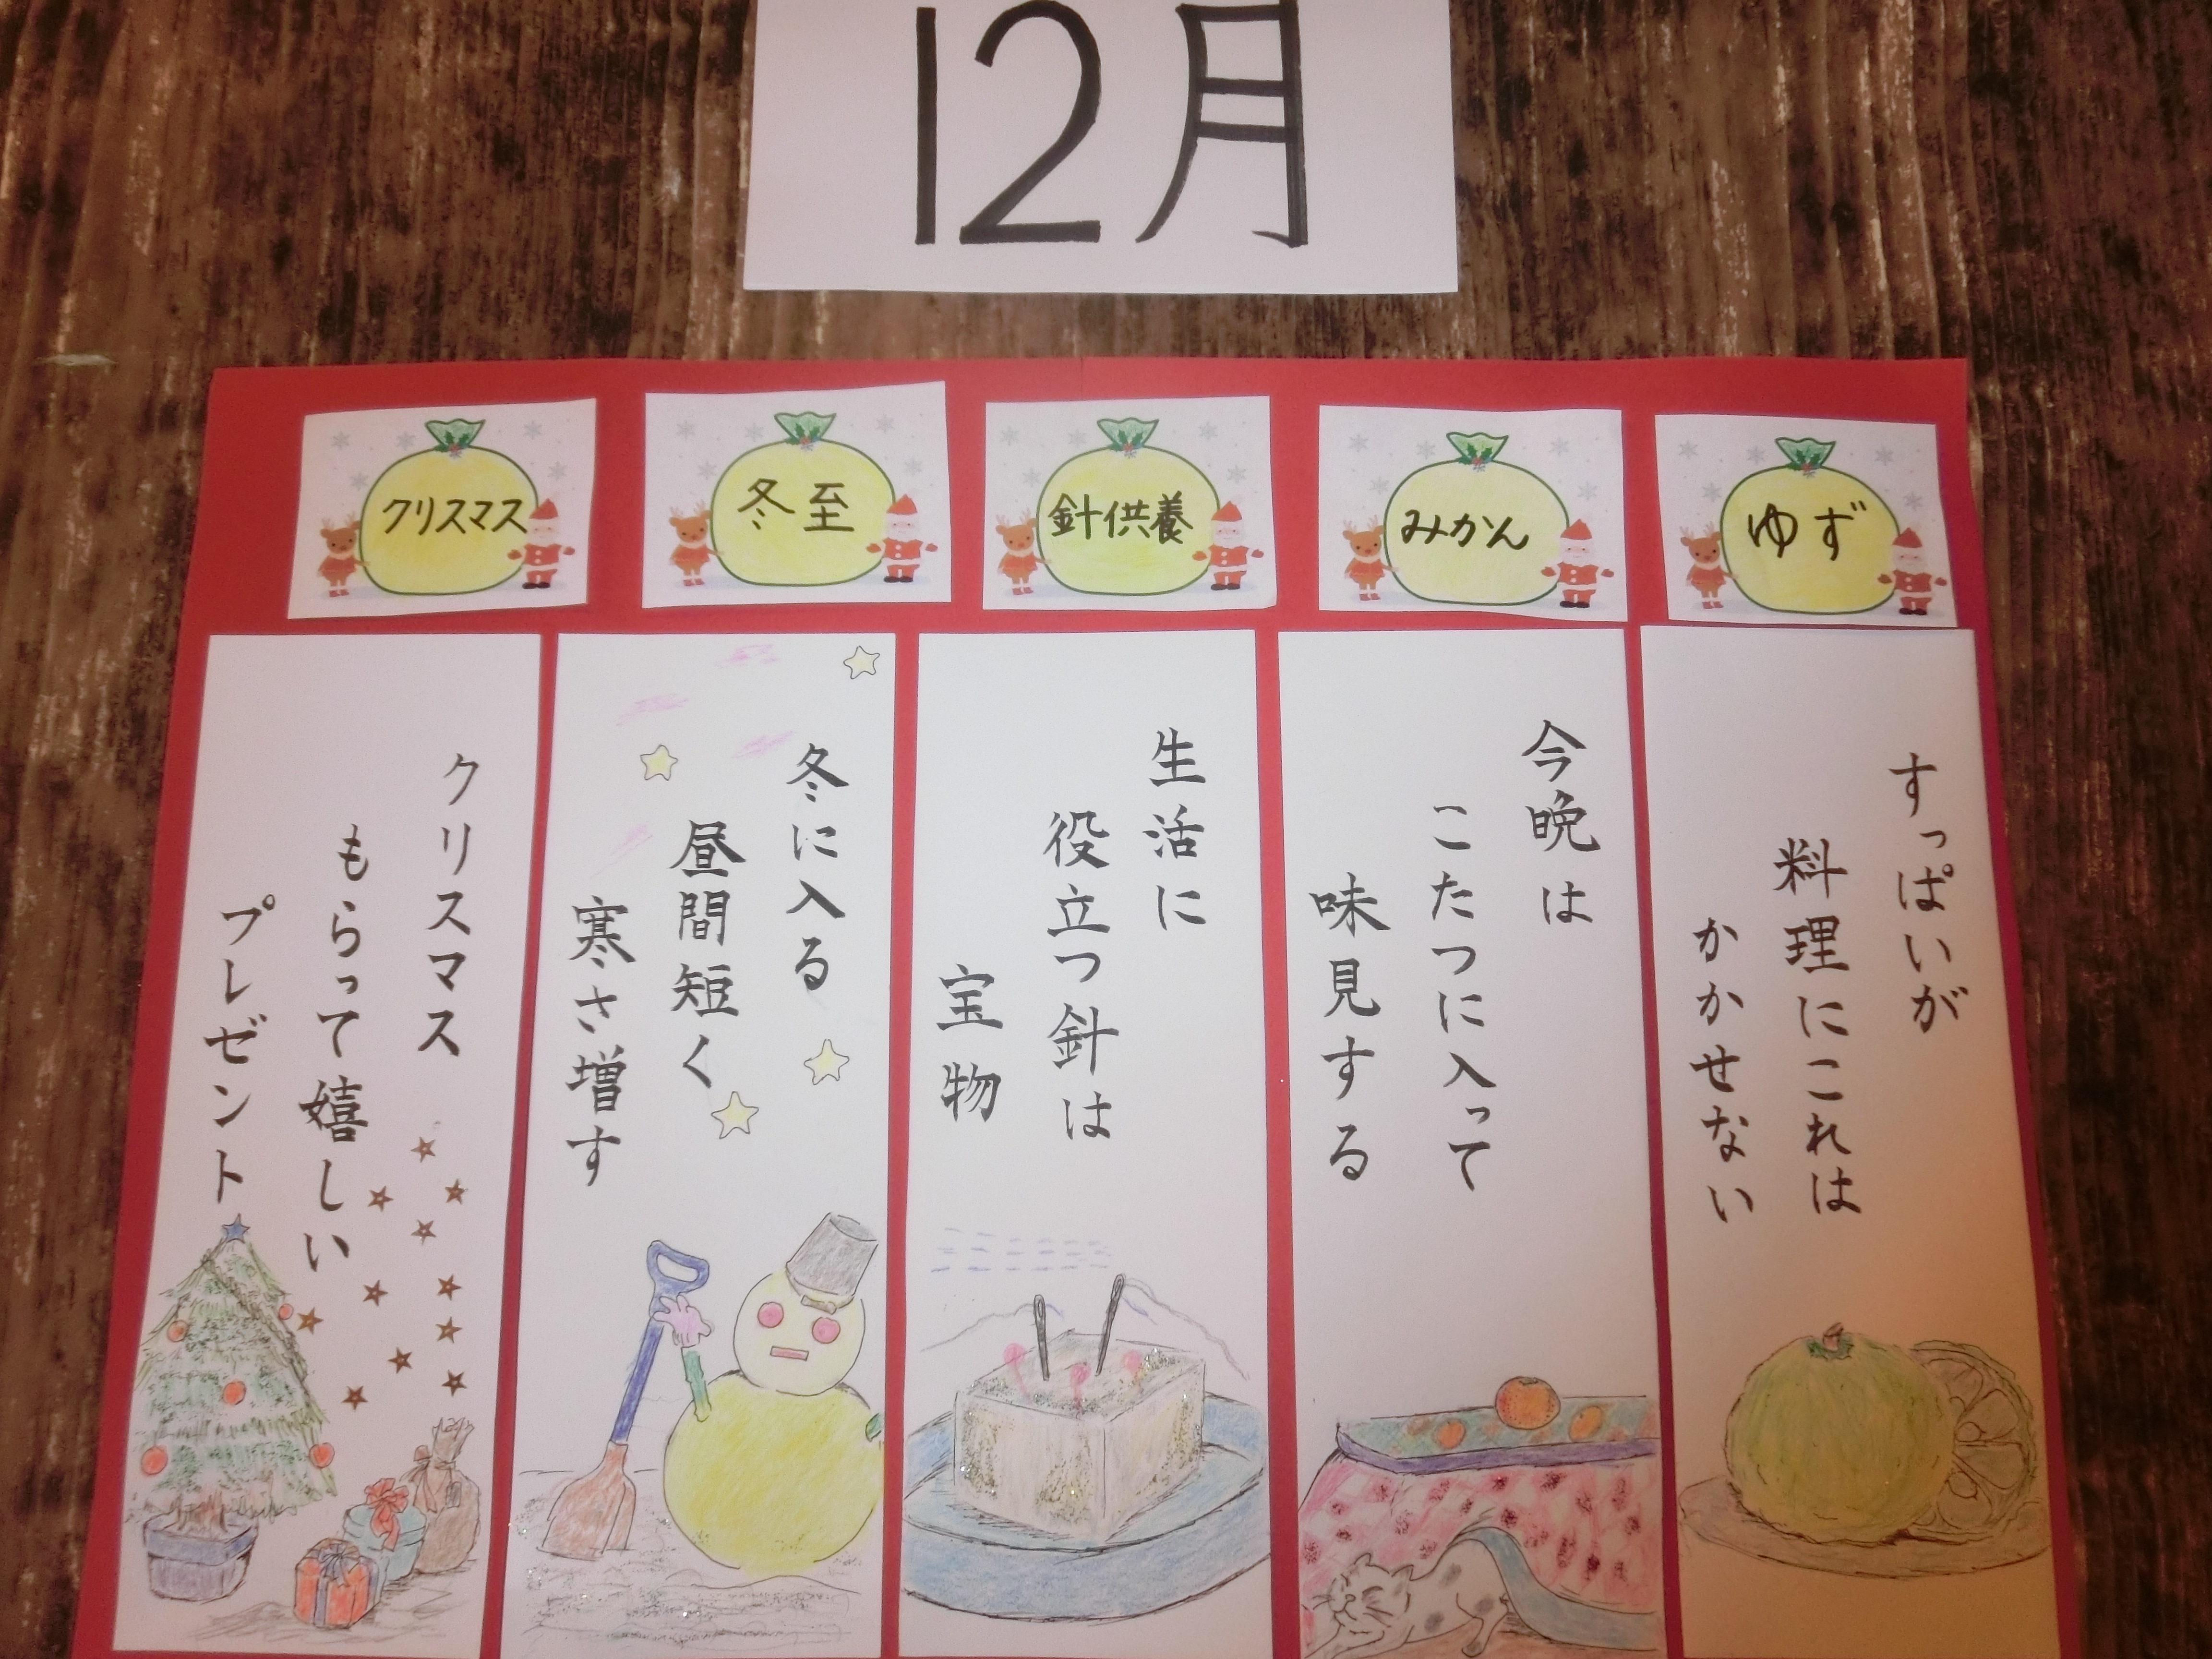 12月
ゆず
みかん
針供養
冬至
クリスマス
すっぱいが
料理にこれは
かかせない
今晩は
こたつに入って
味見する
生活に
役立つ針は
宝物
冬に入る
昼間短く
寒さ増す
クリスマス
もらって嬉しい
プレゼント